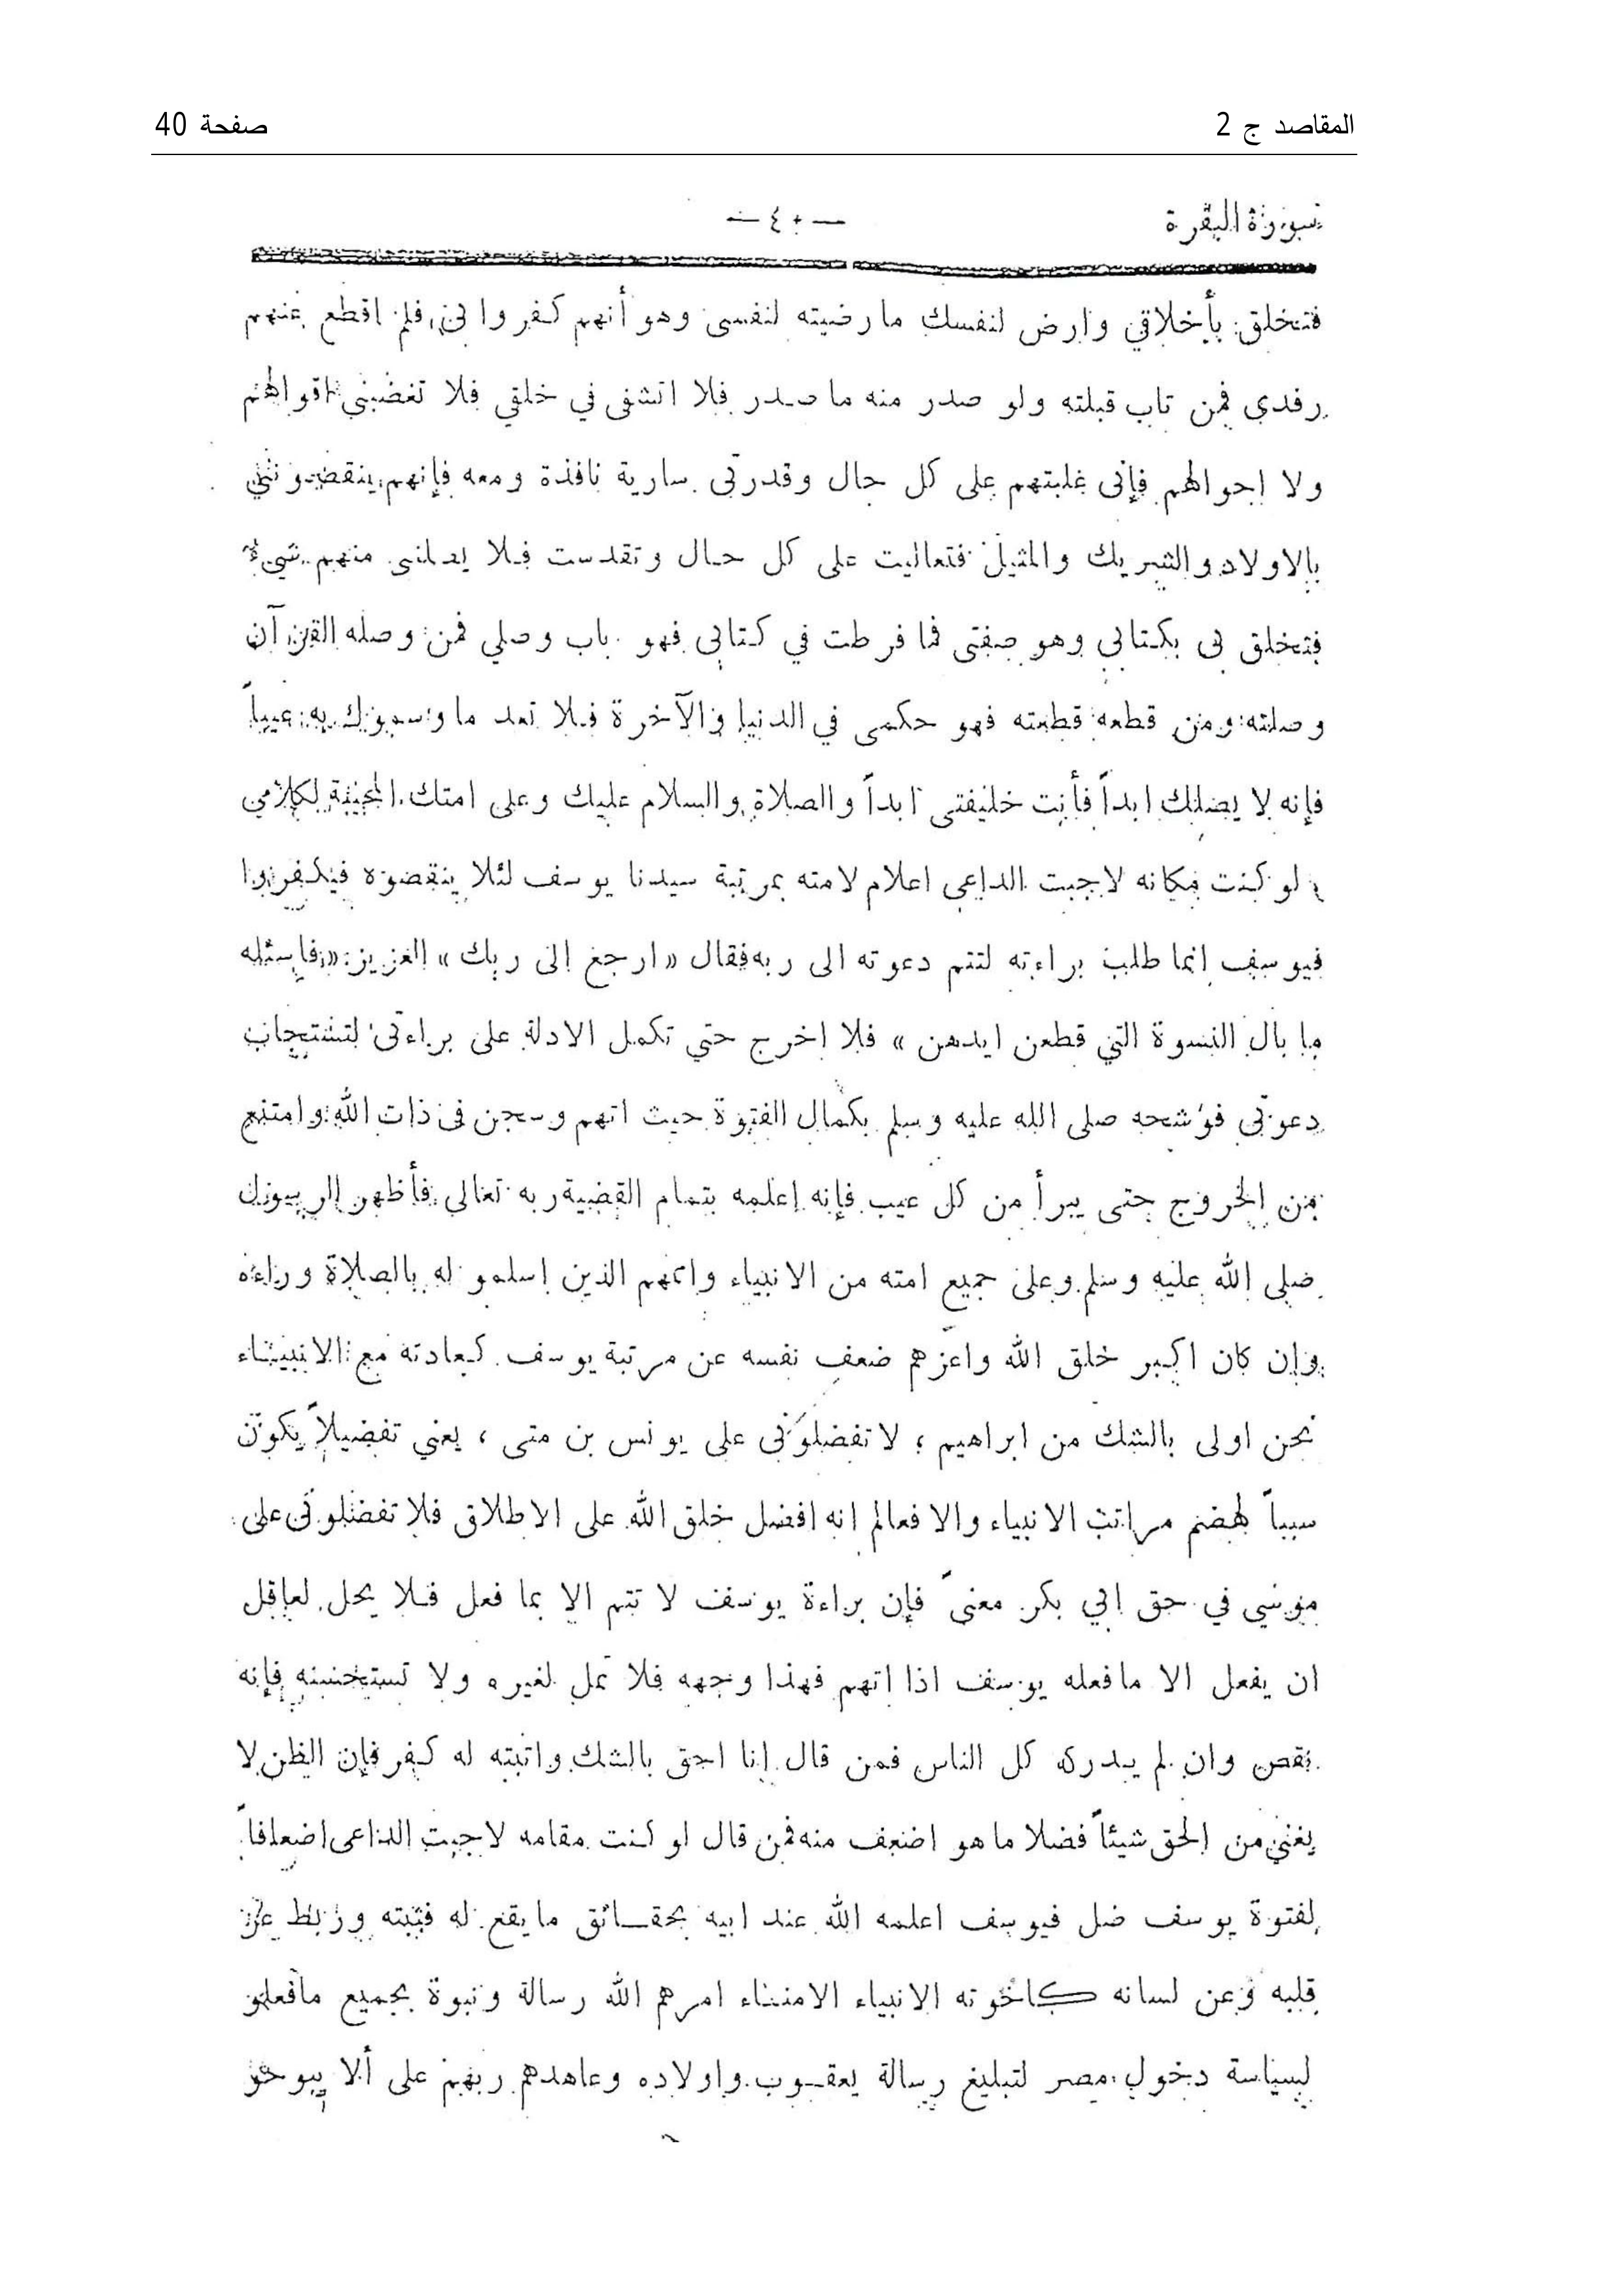 المقاصد ج 2
صفحة 40
سورة البقرة
— ٤٠ —
فتخلق بأخلاقي وارض لنفسك ما رضيته لنفسى وهو أنهم كفروا بى فلم اقطع عنهم
رفدي فمن تاب قبلته ولو صدر منه ما صدر فلا اتشفى في خلقي فلا تغضبني اقوالهم
ولا احوالهم فإنى غلبتهم على كل حال وقدرتى سارية نافذة ومعه فإنهم ينقضونني
بالاولاد والشريك والمثيل فتعاليت على كل حال وتقدست فلا يصلنى منهم شيء
فتخلق بى بكتابى وهو صفتى فما فرطت في كتابى فهو باب وصلي فمن وصله القرآن
وصلته ومن قطعه قطعته فهو حكمى في الدنيا والآخرة فلا تعد ما وسموك به عيباً
فإنه لا يضلك ابداً فأنت خليفتى ابداً والصلاة والسلام عليك وعلى امتك المجيبة لكلامي
ولو كنت مكانه لاجبت الداعى اعلام لامته بمرتبة سيدنا يوسف لئلا ينقصوه فيكفروا
فيوسف انما طلب براءته لتتم دعوته الى ربه فقال « ارجع الى ربك » العزيز « فاسئله
ما بال النسوة التي قطعن ايدهن » فلا اخرج حتي تكمل الادلة على براءتى لتستجاب
دعوتى فوشحه صلى الله عليه وسلم بكمال الفتوة حيث اتهم وسجن فى ذات الله وامتنع
من الخروج حتى يبرأ من كل عيب فإنه اعلمه بتمام القضية ربه تعالى فأظهر الرسول
صلى الله عليه وسلم وعلى جميع امته من الانبياء واتمهم الذين اسلمو له بالصلاة وراءه
وإن كان اكبر خلق الله واعزهم ضعف نفسه عن مرتبة يوسف كعادته مع الانبياء
نحن اولى بالشك من ابراهيم ؛ لا تفضلونى على يونس بن متى ، يعني تفضيلاً يكون
سبباً لهضم مراتب الانبياء والا فعالم انه افضل خلق الله على الاطلاق فلا تفضلونى على
موسي في حق ابي بكر معنى فإن براءة يوسف لا تتم الا بما فعل فلا يحل لعاقل
ان يفعل الا ما فعله يوسف اذا اتهم فهذا وجهه فلا تمل لغيره ولا تستحسنه فإنه
نقص وان لم يدركه كل الناس فمن قال انا احق بالشك واثبته له كفر فإن الظن لا
يغني من الحق شيئاً فضلا ما هو اضعف منه فمن قال لو كنت مقامه لاجبت الداعى اضعافاً
لفتوة يوسف ضل فيوسف اعلمه الله عند ابيه بحقائق ما يقع له فثبته وربط على
قلبه وعن لسانه كاخوته الانبياء الامناء امرهم الله رسالة ونبوة بجميع ما فعلو
لسياسة دخول مصر لتبليغ رسالة يعقوب واولاده وعاهدهم ربهم على ألا يبوحو